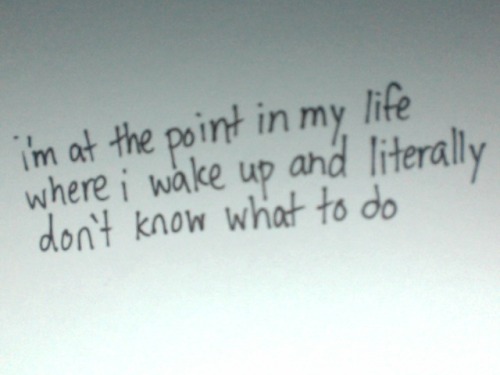 i'm at the point in my life
where i wake up and literally
don't know what to do